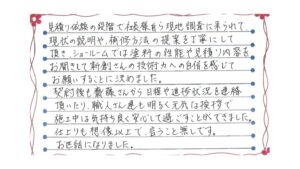 見積り依頼の段階で社長様自ら現地調査に来られて
現状の説明や、補修方法の提案を丁寧にして
頂き、ショールームでは塗料の性能や見積り内容を
お聞きして新創さんの技術力への自信を感じて
お願いすることに決めました。
契約後も齋藤さんから日程や進捗状況を連絡
頂いたり、職人さん達も明るく元気な挨拶で
施工中は気持ち良く安心して過ごすことができました。
仕上りも想像以上で、言うこと無しです。
お世話になりました。